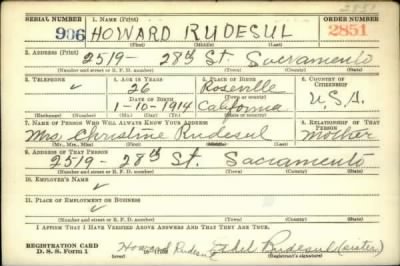 2851
SERIAL NUMBER 1. NAME (Print) ORDER NUMBER
906 HOWARD RUDESUL 2851
(First) (Middle) (Last)
2. ADDRESS (Print)
2519- 28th St. Sacramento
(Number and street or R. F. D. number) (Town) (County) (State)
3. TELEPHONE 4. AGE IN YEARS 5. PLACE OF BIRTH 6. COUNTRY OF CITIZENSHIP
✓ 26 Roseville
DATE OF BIRTH (Town or county)
1-10-1914 California U.S.A.
(Exchange) (Number) (Mo.) (Day) (Yr.) (State or country)
7. NAME OF PERSON WHO WILL ALWAYS KNOW YOUR ADDRESS 8. RELATIONSHIP OF THAT PERSON
Mrs Christine Rudesul Mother
(Mr., Mrs., Miss) (First) (Middle) (Last)
9. ADDRESS OF THAT PERSON
2519- 28th St. Sacramento
(Number and street or R. F. D. number) (Town) (County) (State)
10. EMPLOYER'S NAME
✓
11. PLACE OF EMPLOYMENT OR BUSINESS
✓
(Number and street or R. F. D. number) (Town) (County) (State)
I AFFIRM THAT I HAVE VERIFIED ABOVE ANSWERS AND THAT THEY ARE TRUE.
REGISTRATION CARD Howard Rudesul Ethel Rudesul (sister)
D. S. S. Form 1 (Registrant's signature)